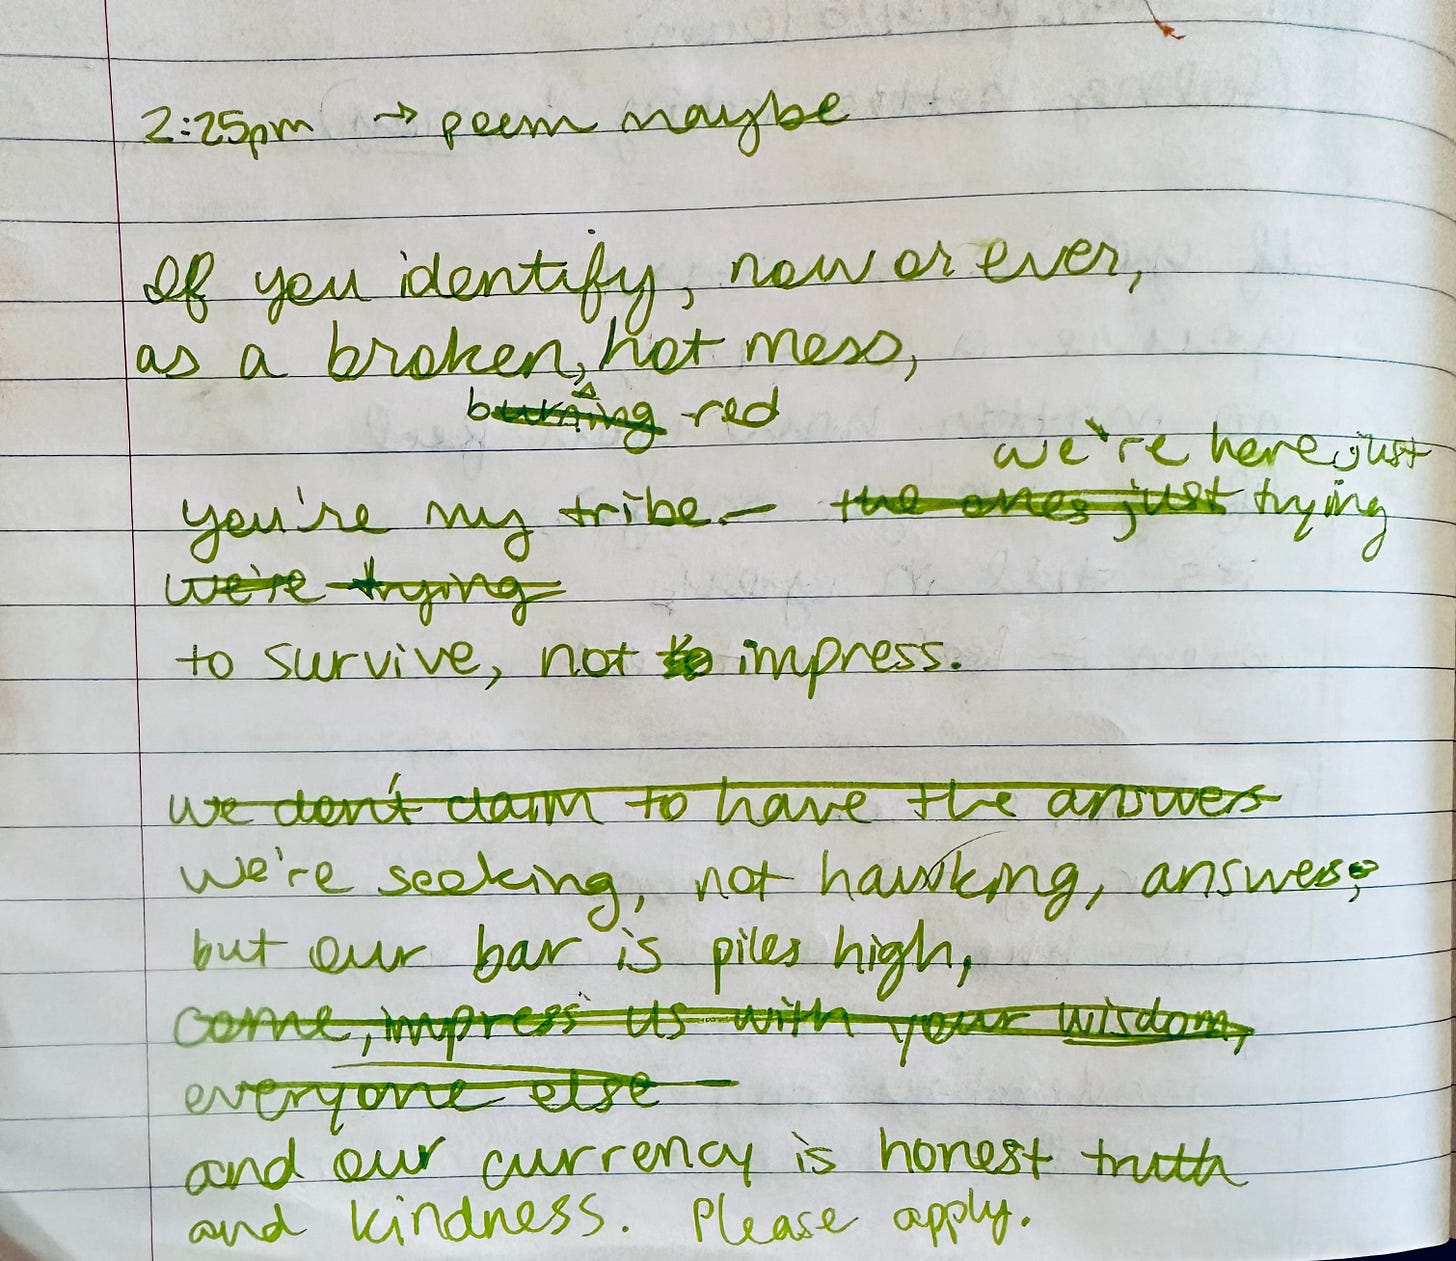 2:25pm → poem maybe
If you identify, now or ever,
as a broken, hot mess,
burning red
we're here just
you're my tribe — the ones just trying
we're trying
to survive, not to impress.
we don't claim to have the answers
we're seeking, not hawking, answers,
but our bar is piles high,
come, impress us with your wisdom,
everyone else
and our currency is honest truth
and kindness. Please apply.